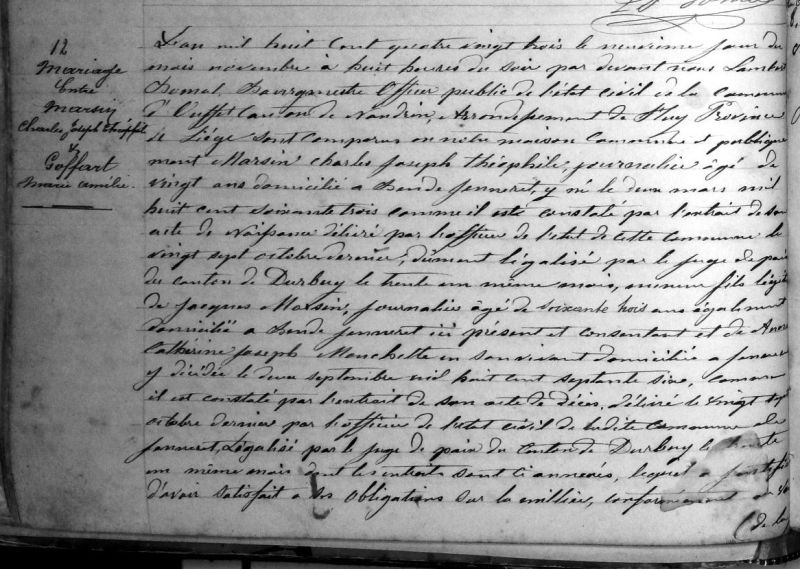 12
Mariage
Entre
Marsin
Charles Joseph Théophile
&
Goffart
Marie amélie.
L'an mil huit cent quatre vingt trois le neuvième jour du
mois novembre à huit heures du soir par devant nous Lambert
Bourgmestre Officier public de l'état civil de la commune
d'Ouffet canton de Nandrin, Arrondissement de Huy Province
de Liége sont comparus en notre maison commune et publique
ment Marsin Charles Joseph Théophile, journalier âgé de
vingt ans domicilié a Bende Jenneret, y né le deux mars mil
huit cent soixante trois comme il est constaté par l'extrait de son
acte de Naissance délivré par l'officier de l'état de cette commune le
vingt sept octobre dernier, dûment légalisé par le juge de paix
du canton de Durbuy le trente un même mois, mineur fils légiti
de Jacques Marsin, journalier âgé de soixante trois ans également
domicilié a Bende Jenneret ici présent et consentant et de Anne
Catherine Joseph Monchette en son vivant domiciliée a Jenneret
y décédée le deux septembre mil huit cent septante six, comme
il est constaté par l'extrait de son acte de décès, délivré le vingt sept
octobre dernier par l'officier de l'état civil de ladite commune de
Jenneret, Légalisé par le juge de paix du Canton de Durbuy le trente
un même mois dont les extraits sont ci annexés, lequel a justifié
d'avoir satisfait a ses obligations sur la milice, conformément au
(de la